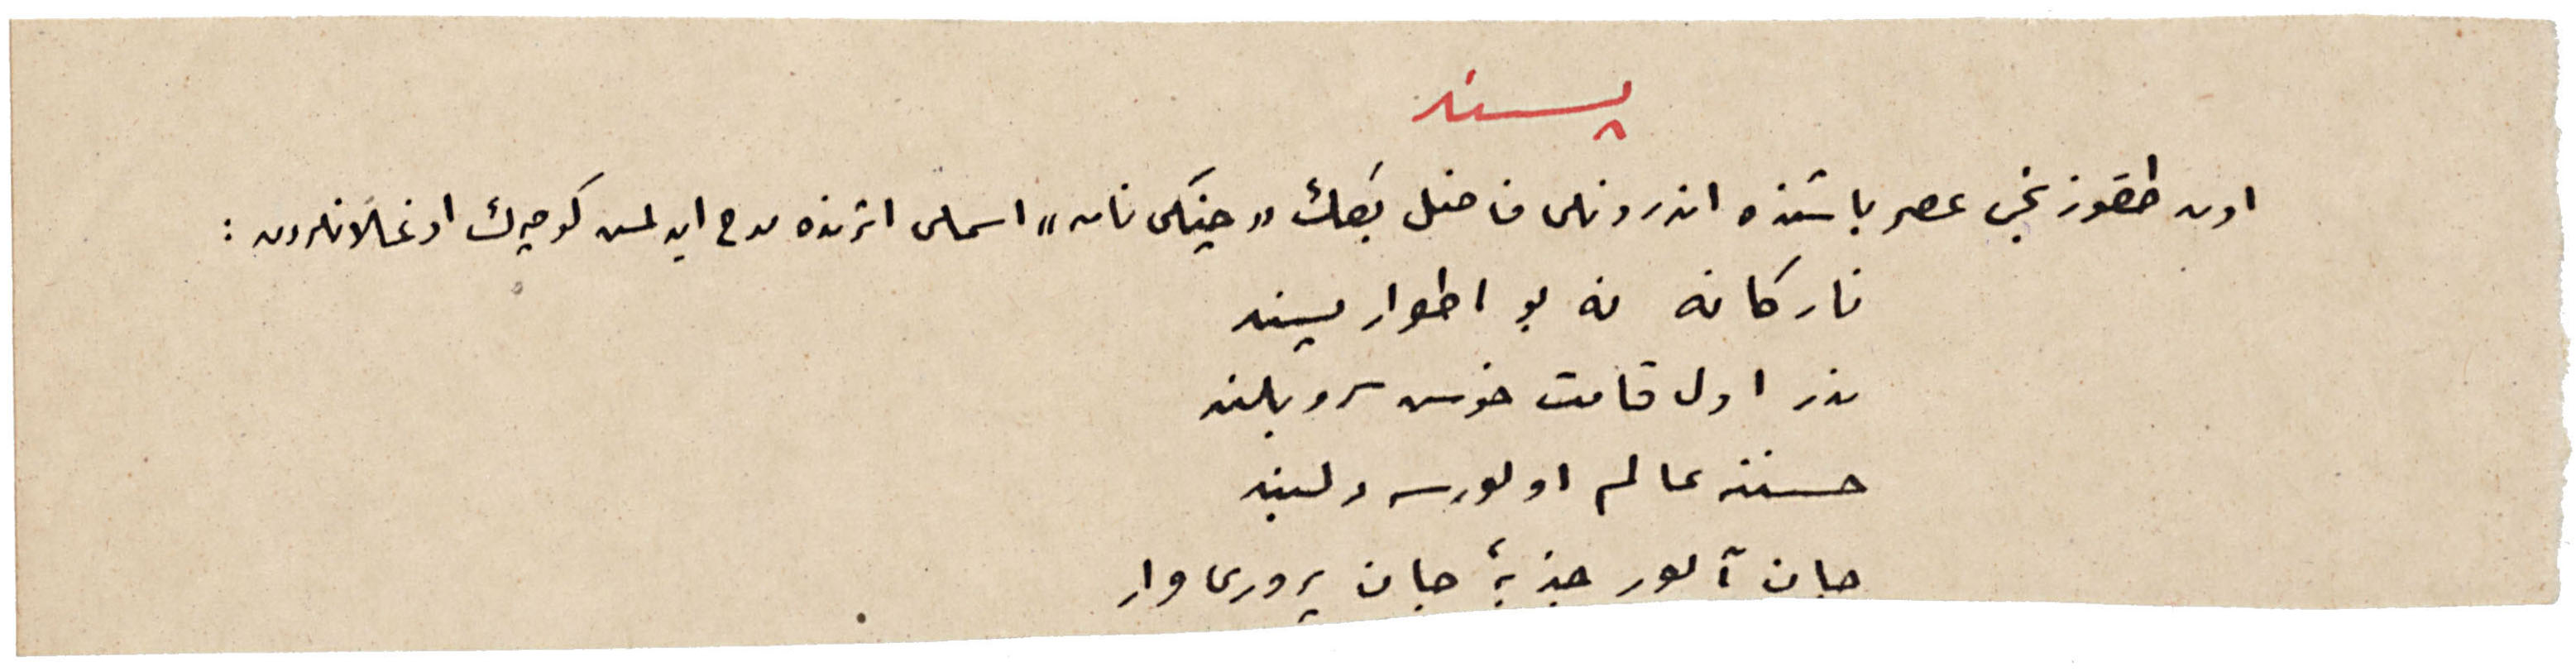 پسند
اون طقوزنجی عصر باشنده اندرونلی فاضل بگك «چنگی نامه» اسملی اثرنده مدح ایدلمش كوچك اوغلانلردن :
نازكانه نه بو اطوار پسند
ندر اول قامت خوش سرو بلند
حسننه عالم اولورسه دلبند
جان آلور جذبهٔ جان پروری وار